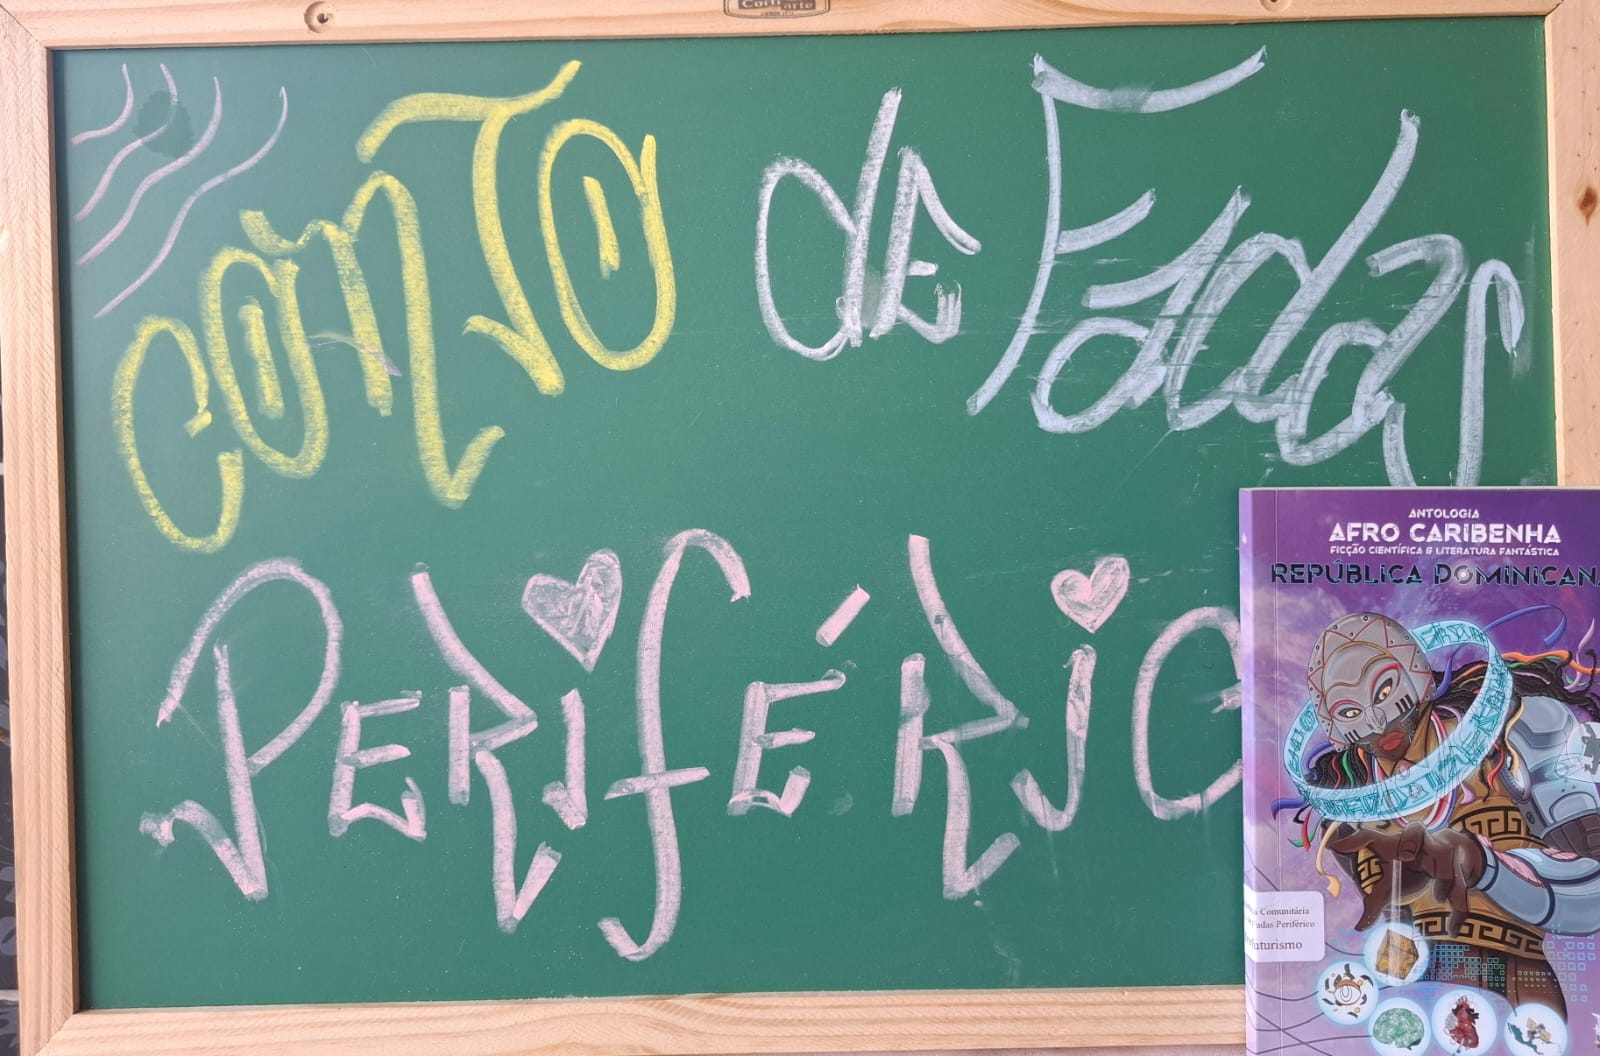 Cortiarte
CONTO de Fadas
PERIFÉRIC
ANTOLOGIA
AFRO CARIBENHA
FICÇÃO CIENTÍFICA & LITERATURA FANTÁSTICA
REPÚBLICA DOMINICANA
Comunitária
Fadas Periférico
futurismo